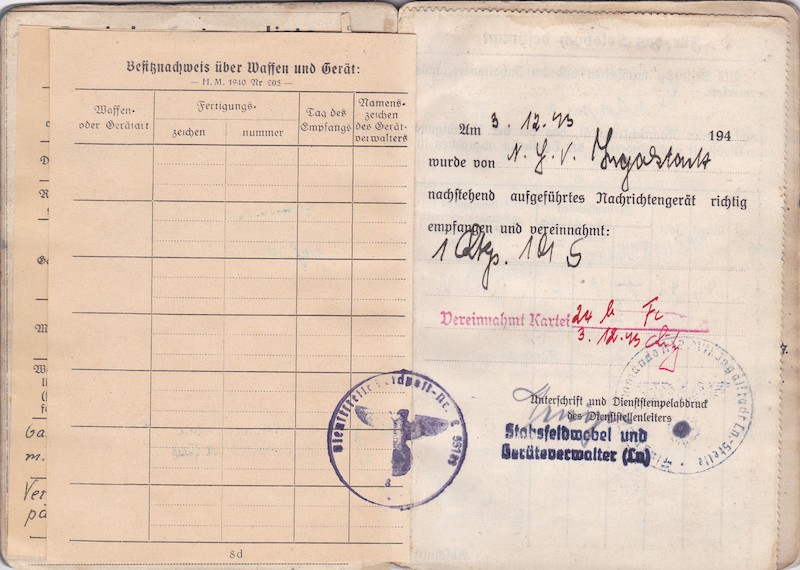 Besitznachweis über Waffen und Gerät:
— H. M. 1940 Nr. 205 —
Waffen-
oder Gerätart
Fertigungs-
zeichen
nummer
Tag des
Empfangs
Namens-
zeichen
des Gerät-
verwalters
8d
Am 3. 12. 43 194
wurde von N. Ingolstadt
nachstehend aufgeführtes Nachrichtengerät richtig
empfangen und vereinnahmt:
1
Vereinnahmt Kartei 24 b
3. 12. 43
Unterschrift und Dienststempelabdruck
des Dienststellenleiters
Stabsfeldwebel und
Geräteverwalter (Ln)
Dienststelle Feldpost-Nr.
Ln-Stelle